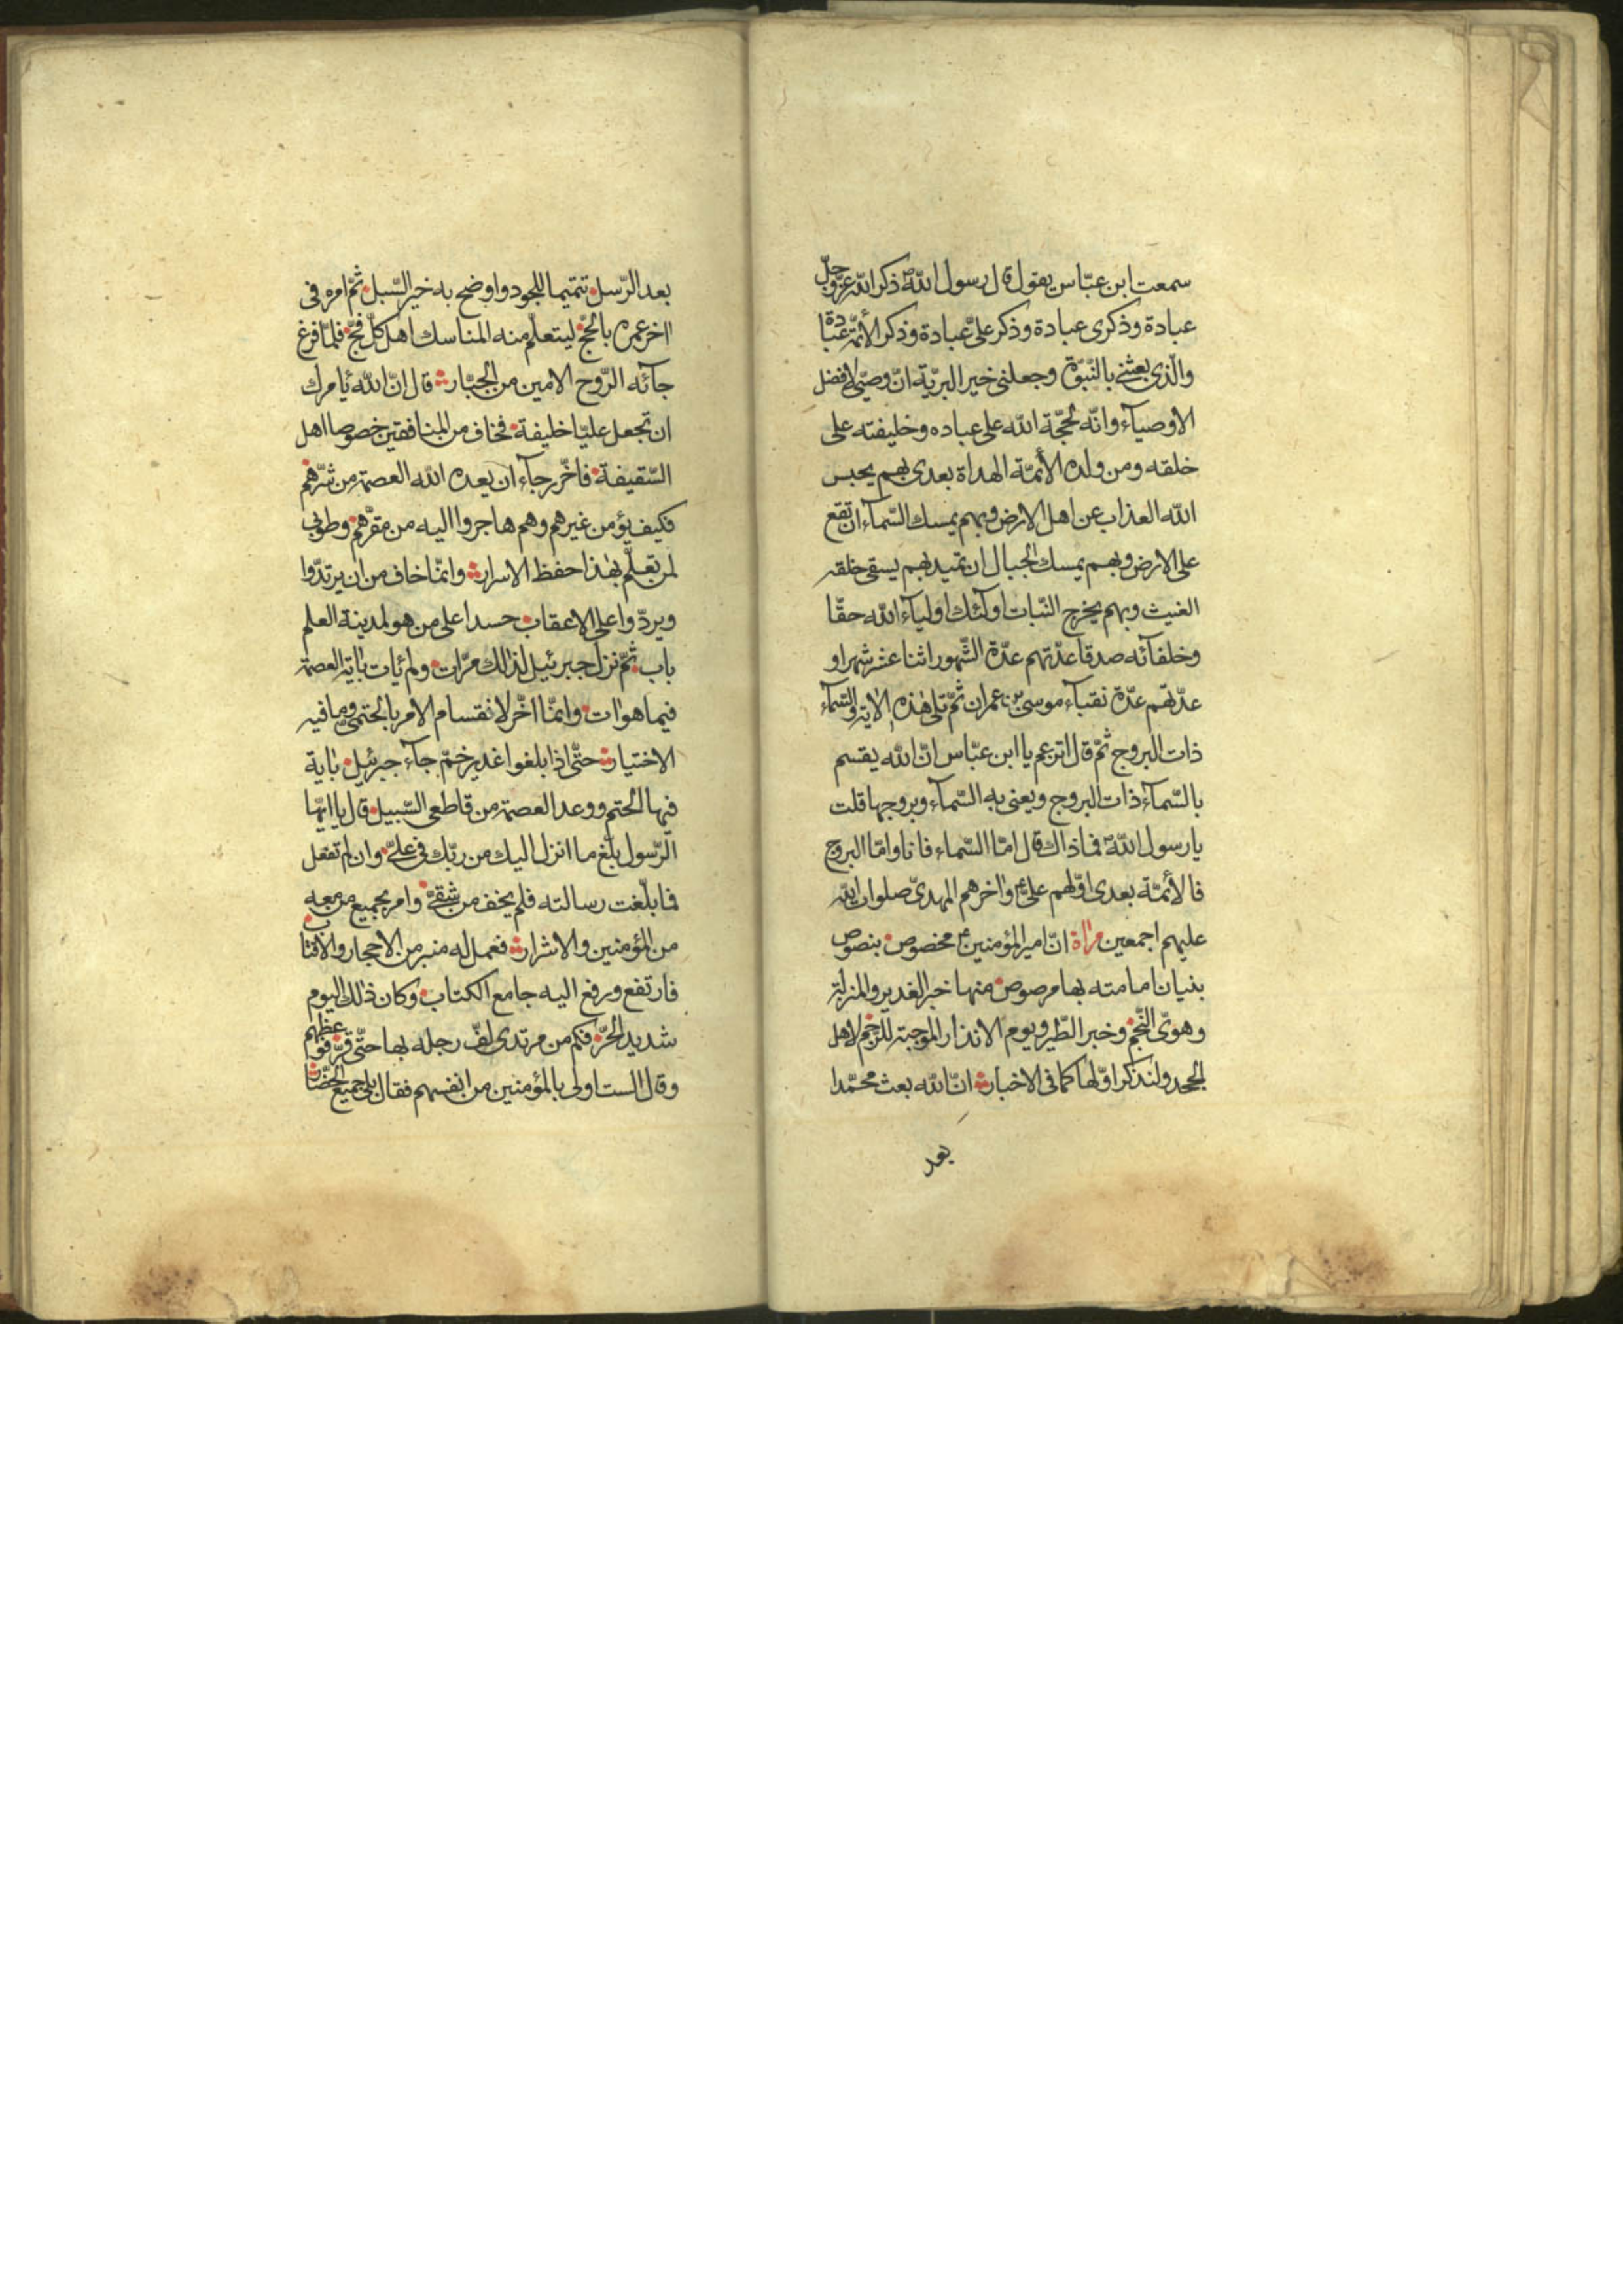 سمعت ابن عبّاس يقول قال رسول اللّه ص ذكر اللّه عزّ وجلّ
عبادة وذكرى عبادة وذكر علىّ عبادة وذكر الأئمّة عبادة
والّذى بعثنى بالنّبوّة وجعلنى خير البريّة انّ وصيّى لافضل
الاوصيآء وانّه لحجّة اللّه على عباده وخليفته على
خلقه ومن ولده الأئمّة الهداة بعدى بهم يحبس
اللّه العذاب عن اهل الارض وبهم يمسك السّمآء ان تقع
على الارض وبهم يمسك الجبال ان تميد بهم يسقى خلقه
الغيث وبهم يخرج النّبات اولٓئك اوليآء اللّه حقّا
وخلفآئه صدقا عدّتهم عدّة الشّهور اثنا عشر شهرا و
عدّتهم عدّة نقبآء موسى بن عمران ثمّ تلى هذه الاية والسّمآء
ذات البروج ثمّ قال اتزعم يا ابن عبّاس انّ اللّه يقسم
بالسّمآء ذات البروج ويعنى به السّمآء وبروجها قلت
يا رسول اللّه ص فما ذاك قال امّا السّماء فانا وامّا البروج
فالأئمّة بعدى اوّلهم علىّ ع واخرهم المهدىّ صلوات اللّه
عليهم اجمعين مرٰاة انّ امير المؤمنين ع مخصوص بنصوص
بنيان امامته بها مرصوص منها خبر الغدير والمنزلة
وهوىّ النّجم وخبر الطّير ويوم الانذار الموجبة للرّجم لاهل
الجحد ولنذكر اوّلها كما فى الاخبار انّ اللّه بعث محمّدا
بعد
بعد الرّسل تتميما للجود واوضح به خير السّبل ثمّ امره فى
اخر عمره بالحجّ ليتعلّم منه المناسك اهل كلّ فجّ فلمّا فرغ
جآئه الرّوح الامين من الجبّار قال انّ اللّه ئامرك
ان تجعل عليّا خليفة فخاف من المنافقين خصوصا اهل
السّقيفة فاخّر رجآء ان يعده اللّه العصمة من شرّهم
فكيف يؤمن غيرهم وهم هاجروا اليه من مقرّهم وطوبى
لمن تعلّم بهذا حفظ الاسرار وانّما خاف من ان يرتدّوا
ويردّوا على الاعقاب حسدا على من هو لمدينة العلم
باب ثمّ نزل جبرئيل لذلك مرّات ولم ئات بٔاية العصمة
فيما هو اٰت وانّما اخّر لانقسام الامر بالحتمىّ وما فيه
الاختيار حتّى اذا بلغوا غدير خمّ جآء جبرئيل بٔاية
فيها الحتم ووعد العصمة من قاطعى السّبيل قال يا ايّها
الرّسول بلّغ ما انزل اليك من ربّك فى علىّ وان لم تفعل
فما بلّغت رسالته فلم يخف من شقىّ وامر بجميع من معه
من المؤمنين والاشرار فعمل له منبر من الاحجار والاقتاب
فارتفع ورفع اليه جامع الكتاب وكان ذلك اليوم
شديد الحرّ فكم من مرتدى لفّ رجله بها حتّى قرّ فوعظهم
وقال الست اولى بالمؤمنين من انفسهم فقال بلى جميع الحضّار